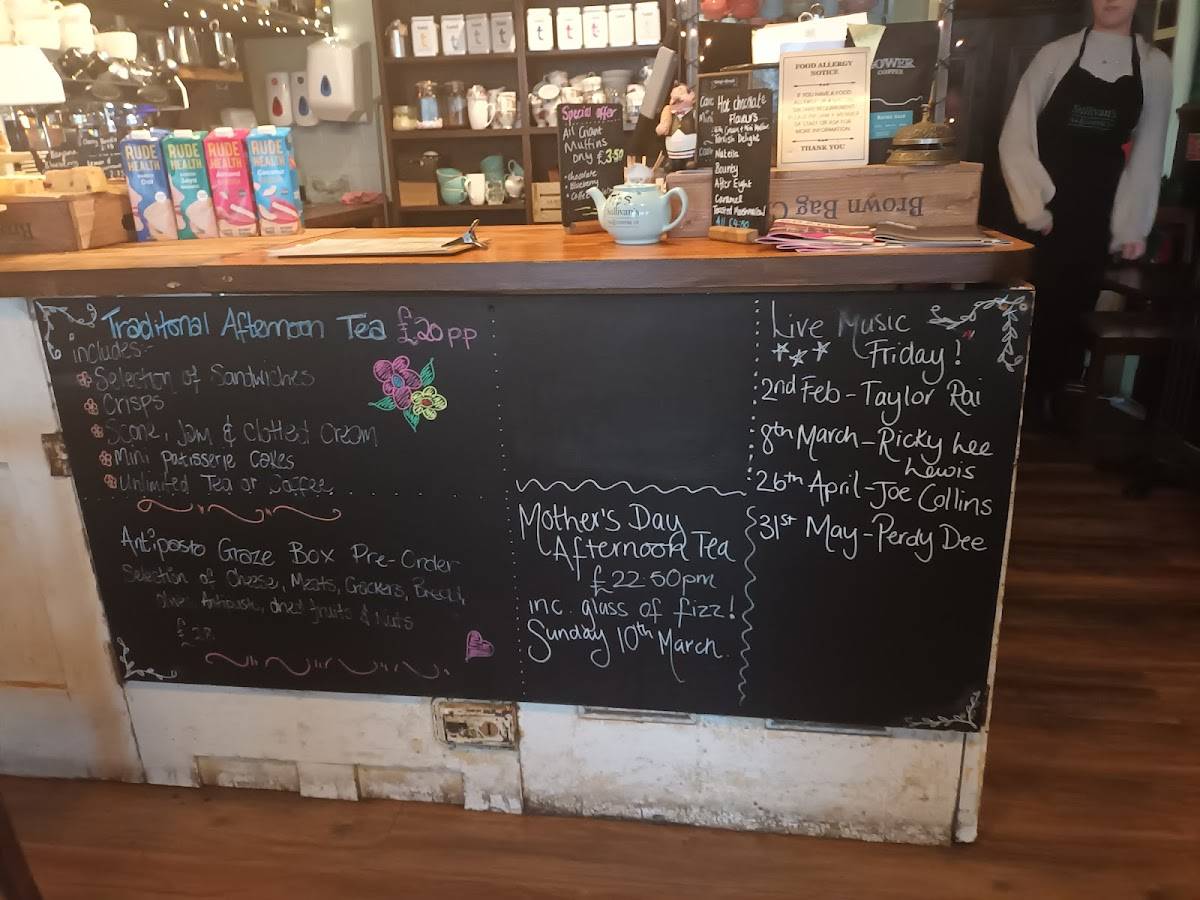 RUDE HEALTH
RUDE HEALTH
RUDE HEALTH
RUDE HEALTH
Special offer
All Giant
Muffins
only £3.50
• Chocolate
• Blueberry
Hot chocolate
Flavours
Turkish Delight
Nutella
Bounty
After Eight
Caramel
Toasted Marshmallow
All £4.50
FOOD ALLERGY
NOTICE
IF YOU HAVE A FOOD
MORE INFORMATION.
THANK YOU
GOWER
COFFEE
Sullivan's
Sullivan's
Brown Bag
Traditonal Afternoon Tea £20pp
includes:-
Selection of Sandwiches
Crisps
Scone, Jam & Clotted Cream
Mini patisserie cakes
Unlimited Tea or Coffee
Antipasto Graze Box Pre-Order
Selection of Cheese, Meats, Crackers, Bread,
dried fruits & Nuts
Mother's Day
Afternoon Tea
£22.50pm
inc. glass of fizz!
Sunday 10th March
Live Music
Friday!
2nd Feb - Taylor Rai
8th March - Ricky Lee
Lewis
26th April - Joe Collins
31st May - Perdy Dee